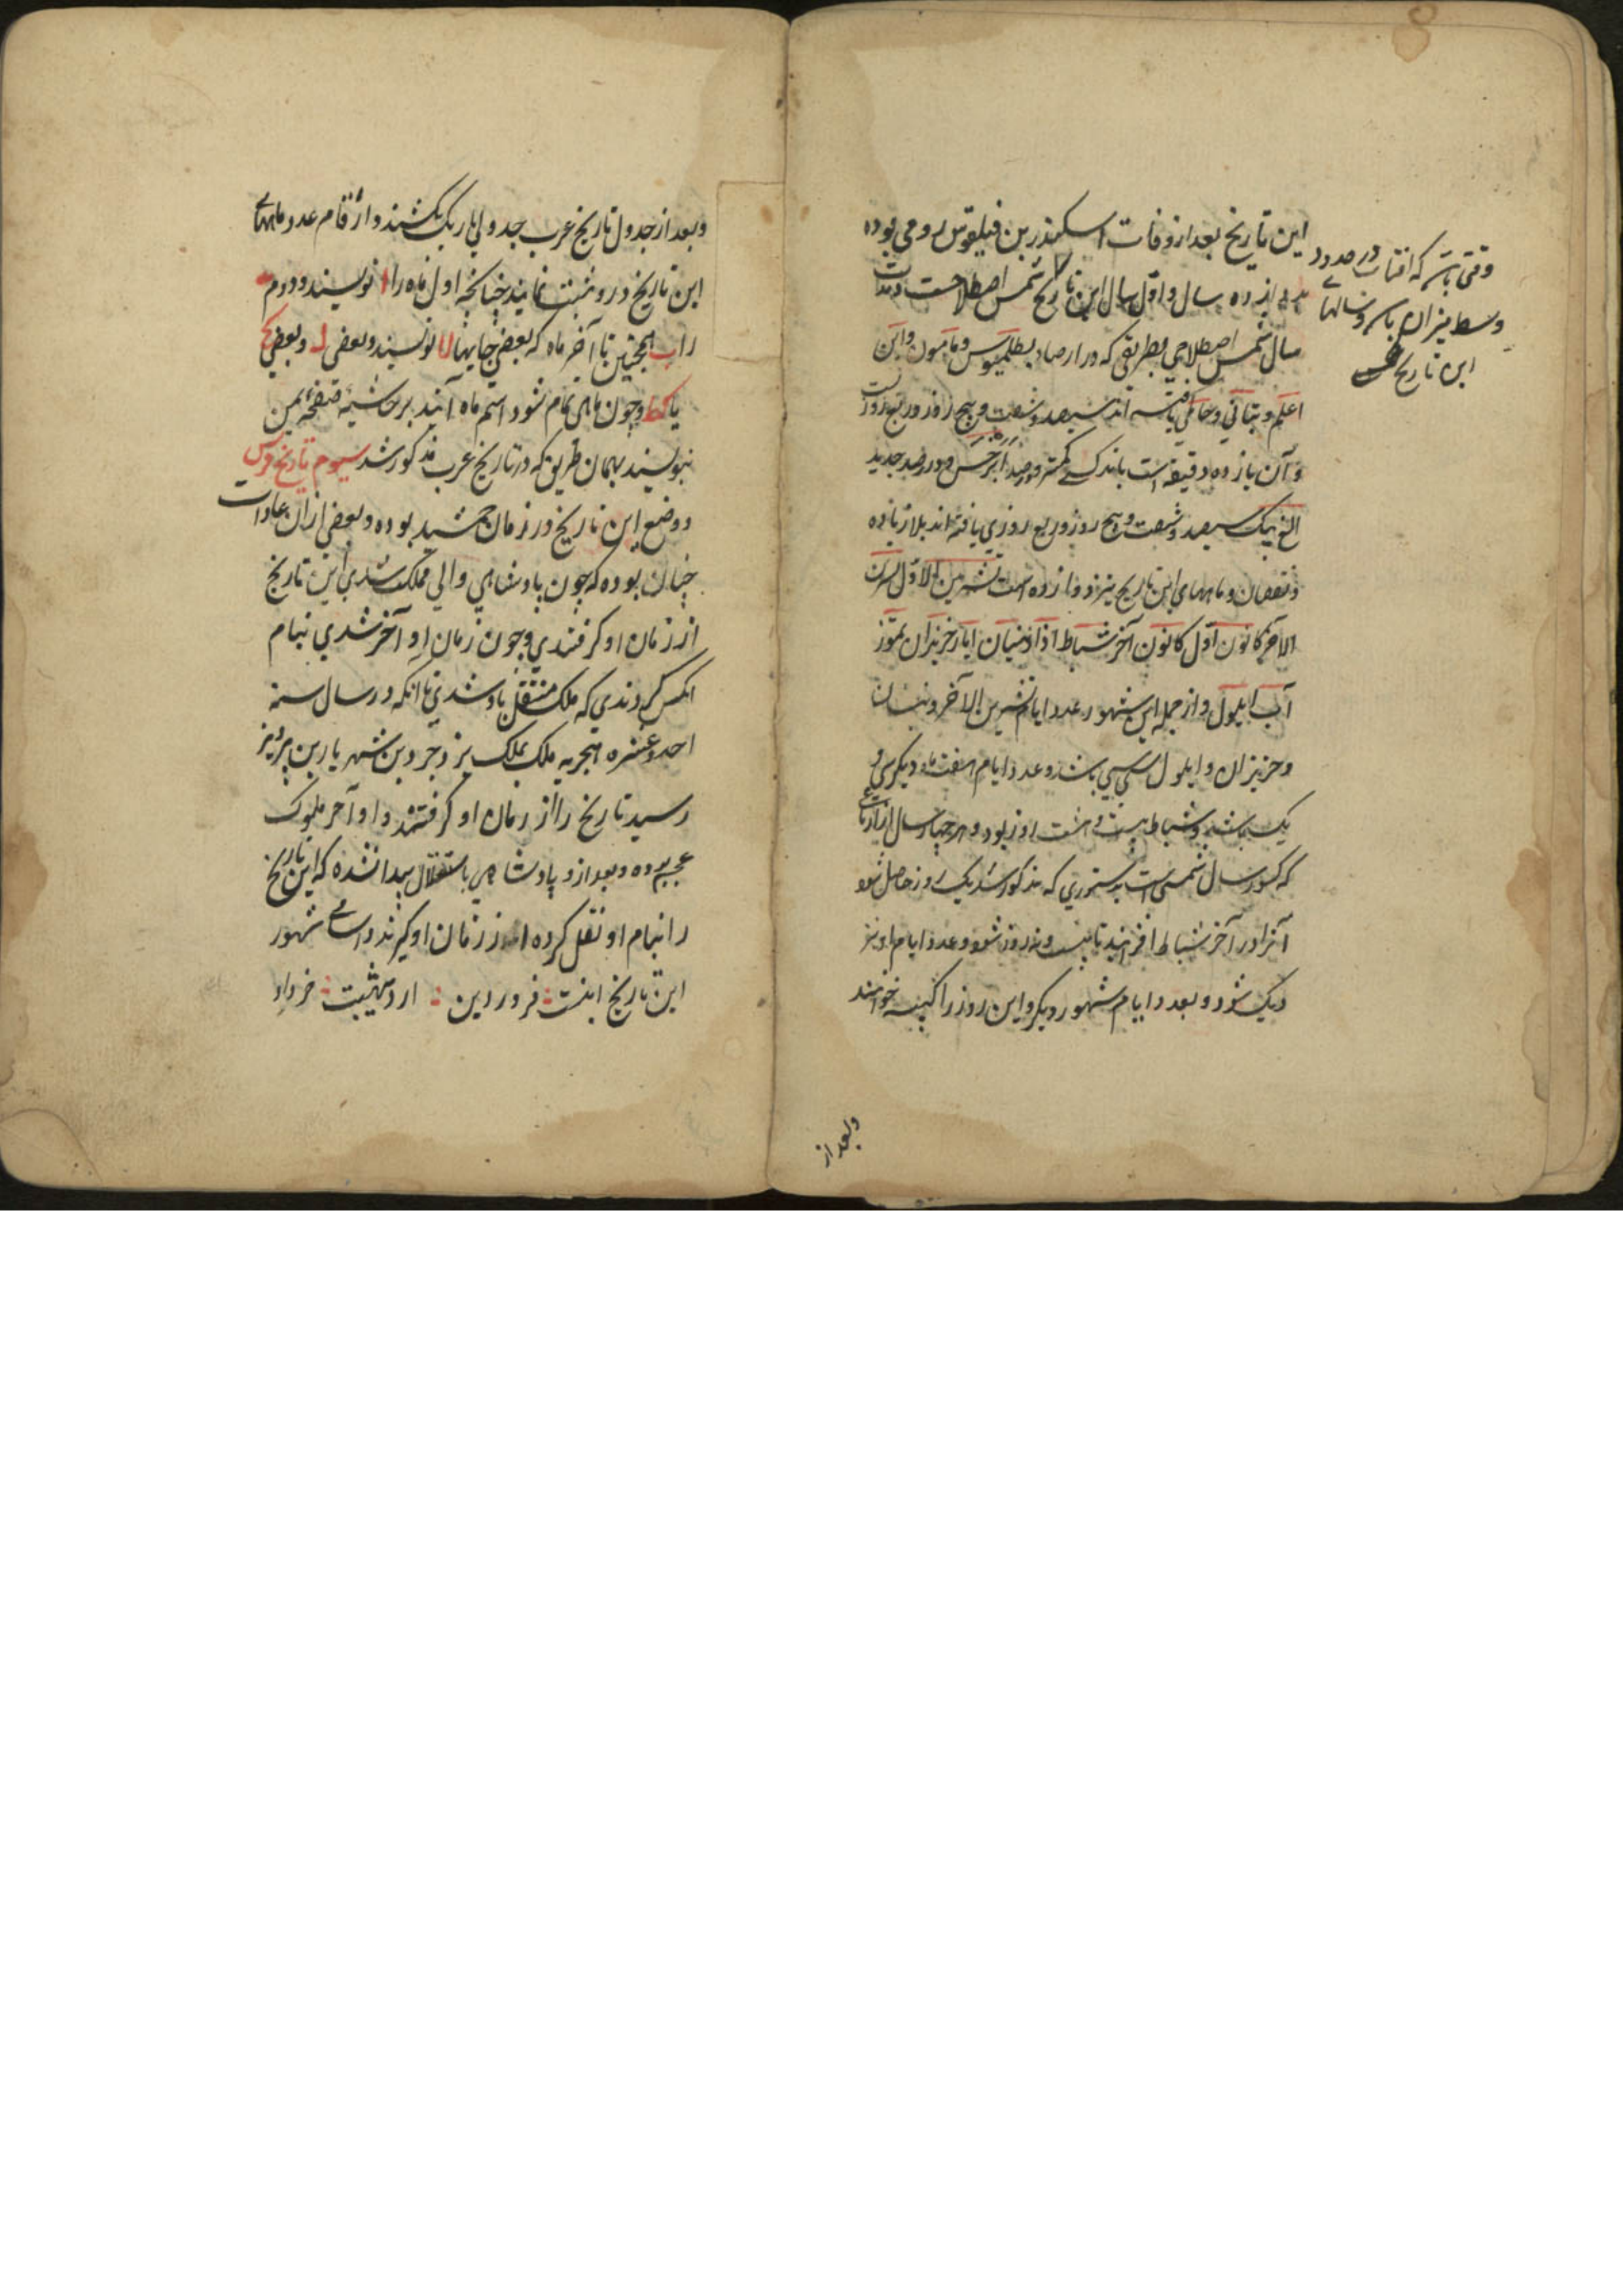 این تاریخ بعد از وفات اسکندر بن فیلقوس رومی بوده
بدوازده سال و اول سال این تاریخ شمسی اصطلاحیست و مدت
سال شمسی اصطلاحی بطریقی که در ارصاد بطلمیوس و مامون و ابن
اعلم و بتانی و حاکمی یافته اند سیصد و شصت و پنج روز و ربع روزست
و آن پانزده دقیقه است باندکی کمتر و رصد ابرخس و در رصد جدید
الغ بیک سیصد و شصت و پنج روز و ربع روزی یافته اند بلا زیاده
و نقصان و ماههای این تاریخ نیز دوازده است تشرین الاول تشرین
الآخر کانون اول کانون آخر شباط اذار نیسان ایار حزیران تموز
آب ایلول و از جمله این شهور عدد ایام تشرین الآخر و نیسان
و حزیران و ایلول سی سی باشد و عدد ایام هفت ماه دیگر سی و
یک باشد و شباط بیست و هشت روز بود و هر چهار سال از ارباعی
که کسور سال شمسی است بدستوری که مذکور شد یک روز حاصل شود
آنرا در آخر شباط افزایند تا بیست و نه روز شود و عدد ایام او نیز
دیگر شود و بعدد ایام شهور دیگر و این روز را کبیسه خوانند
وقتی باشد که افتاب در حدود
وسط میزان باشد و سالهای
این تاریخ
وبعد از
وبعد از جدول تاریخ عرب جدولی باریک بکشند و ارقام عدد ماههای
این تاریخ درو ثبت نمایند چنانچه اول ماه را ا نویسند و دوم
را ب همچنین تا آخر ماه که بعضی جایها لا نویسند و بعضی ل و بعضی کح
یا کط و چون ماهی تمام شود اسم ماه آینده بر حاشیه صفحه یمین
بنویسند بهمان طریق که در تاریخ عرب مذکور شد سیوم تاریخ فرس
و وضع این تاریخ در زمان جمشید بوده و بعضی از آن عادات
چنان بوده که چون پادشاهی والی مملکت شدی این تاریخ
از زمان او گرفتندی و چون زمان او آخر شدی بنام
آنکس کردندی که ملک منتقل باو شدی تا آنکه در سال سنه
احد و عشره هجریه ملک بملک یزدجرد بن شهریار بن پرویز
رسید تاریخ را از زمان او گرفتند و او آخر ملوک
عجم بوده و بعد ازو پادشاهی باستقلال پیدا نشده که این تاریخ
را بنام او نقل کرده از زمان او گیرند و اسامی شهور
این تاریخ اینست فروردین اردیبهشت خرداد